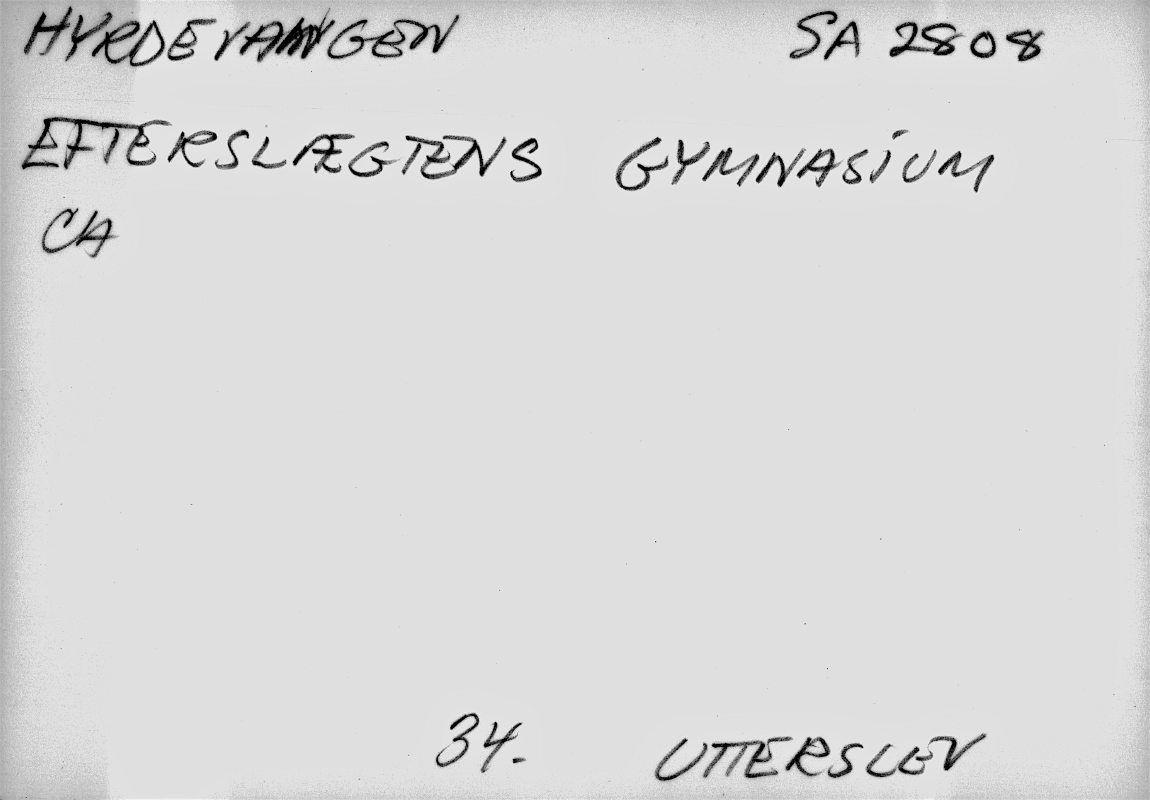 HYRDEVANGEN SA 2808
EFTERSLÆGTENS GYMNASIUM
CA
34. UTTERSLEV